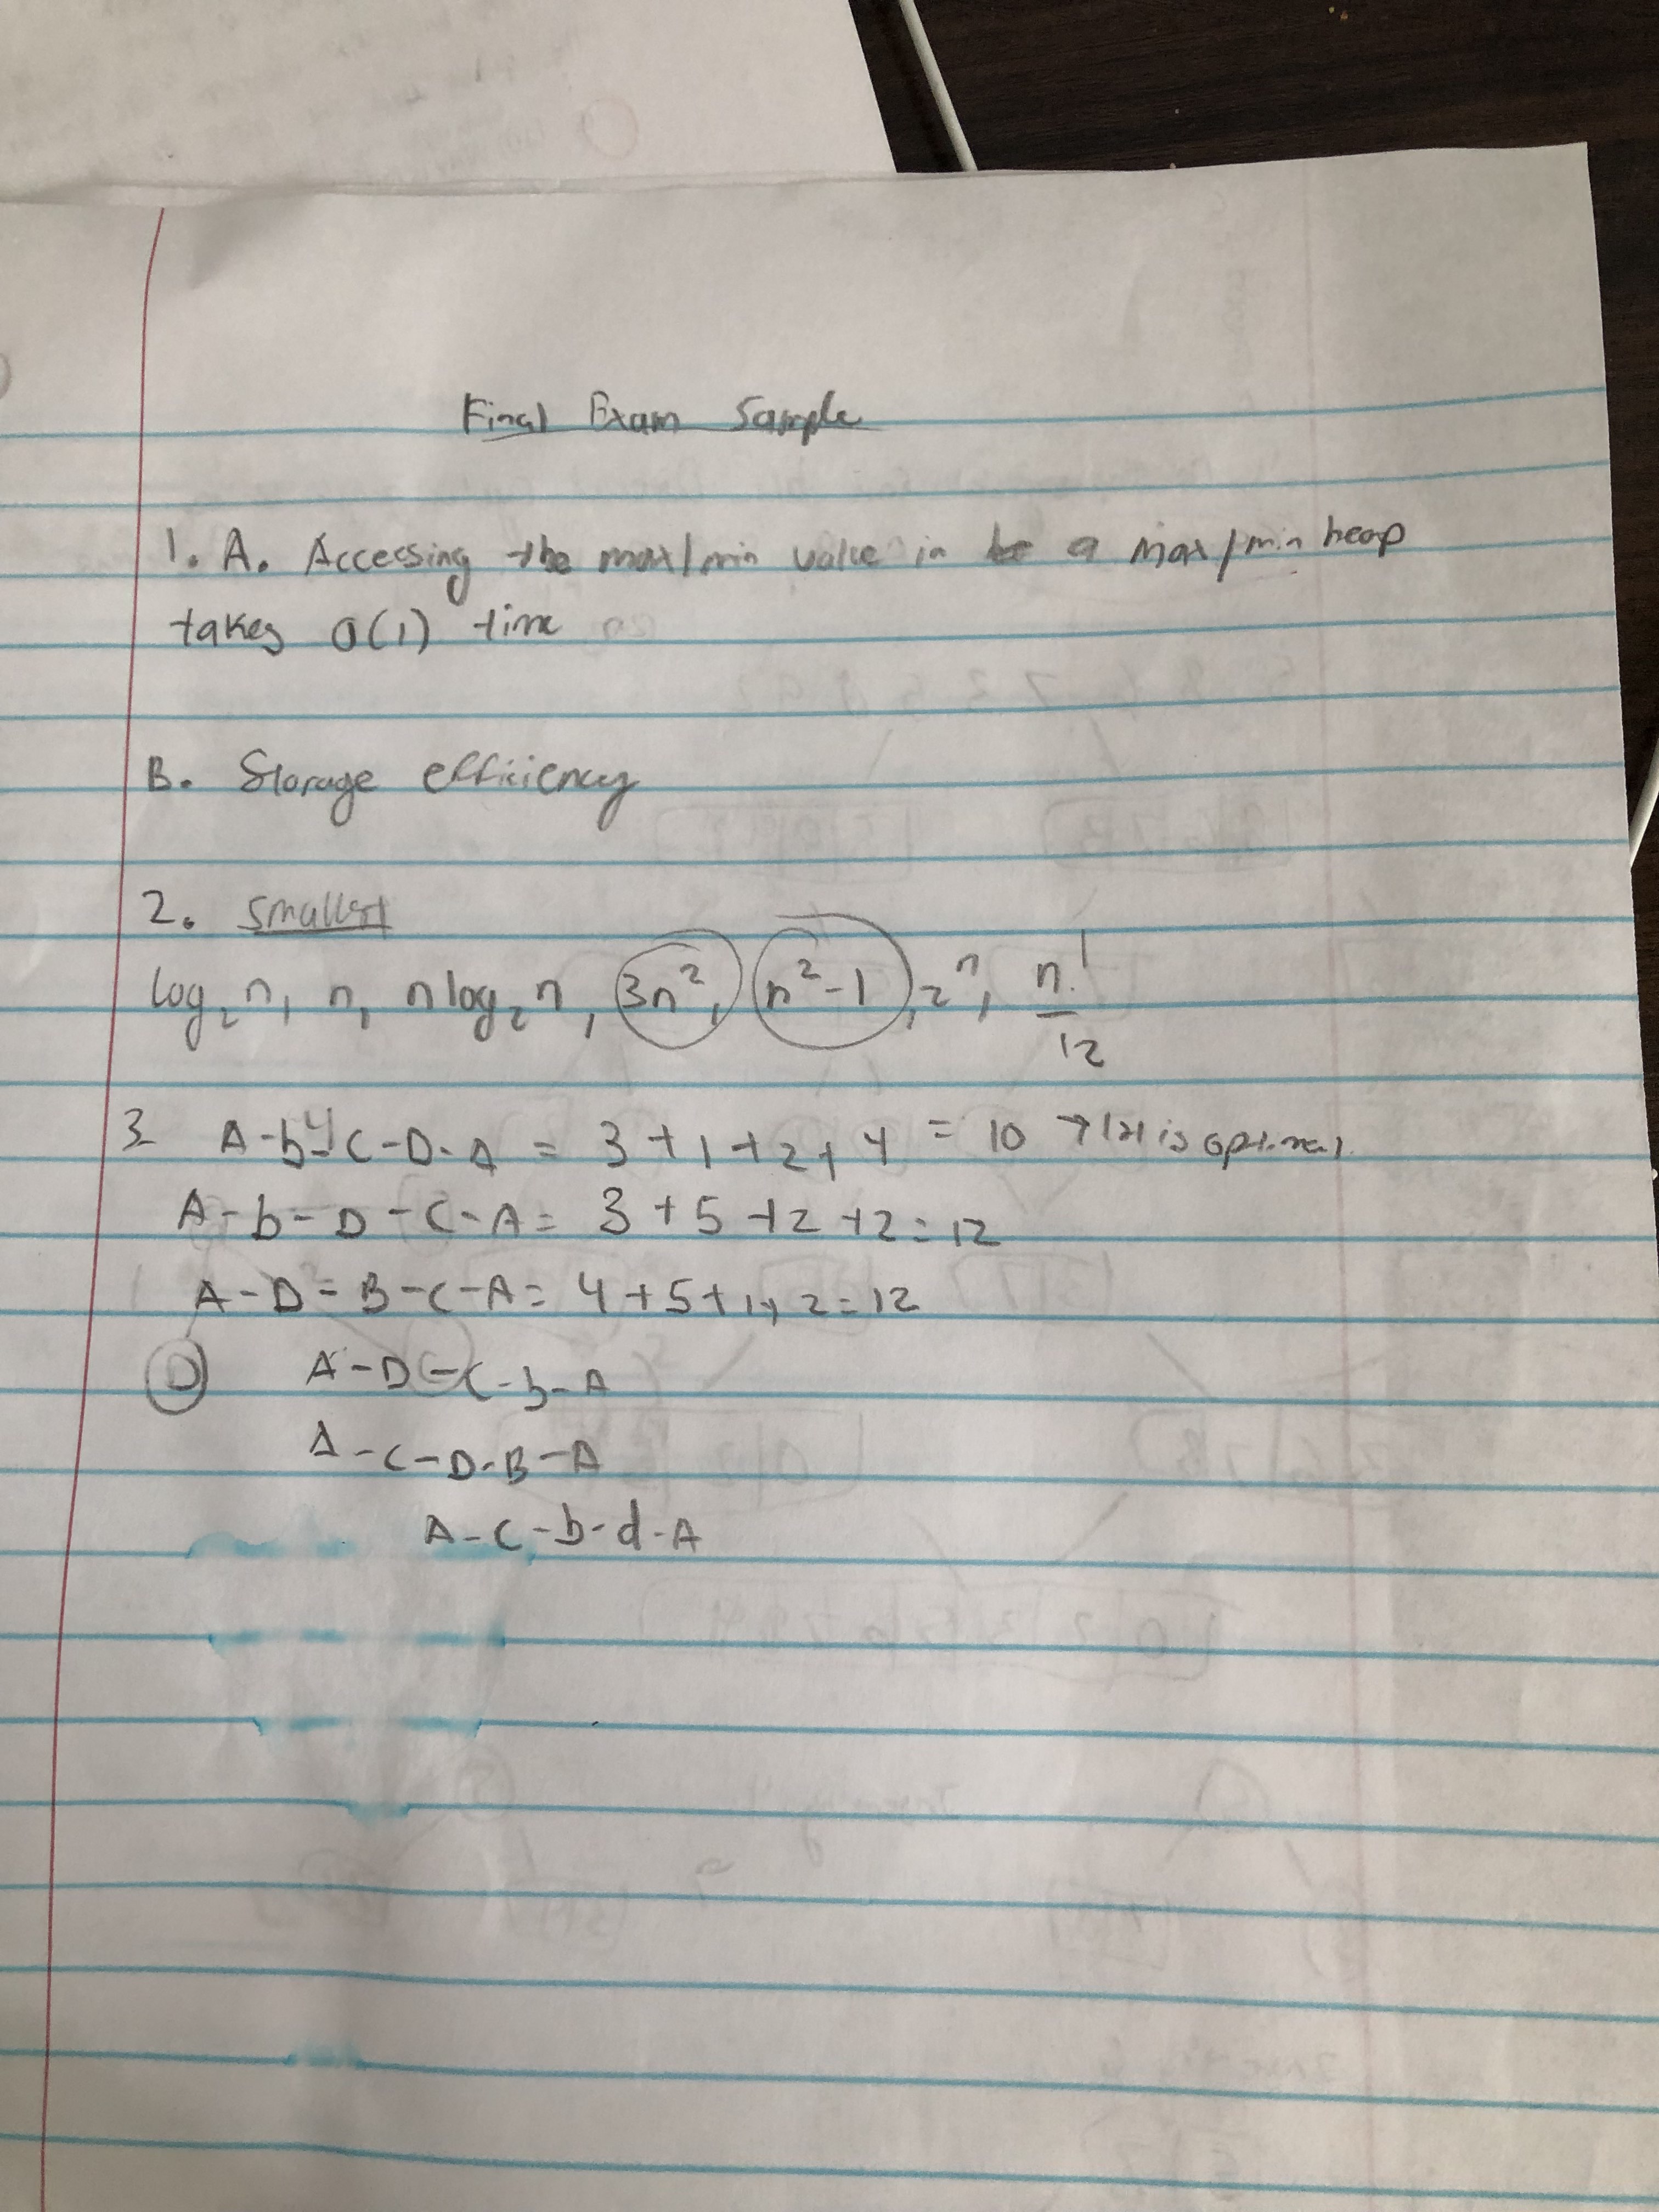 Final Exam Sample
1. A. Accessing the max/min value in a max/min heap
takes O(1) time
B. Storage efficiency
2. smallest
log₂n, n, nlog₂n, 3n², n²-1, 2ⁿ, n!/12
3 A-b-C-D-A = 3+1+2+4 = 10 → 1st is optimal
A-b-D-C-A = 3+5+2+2=12
A-D-B-C-A= 4+5+1+2=12
D A-D-C-b-A
A-C-D-B-A
A-C-b-d-A